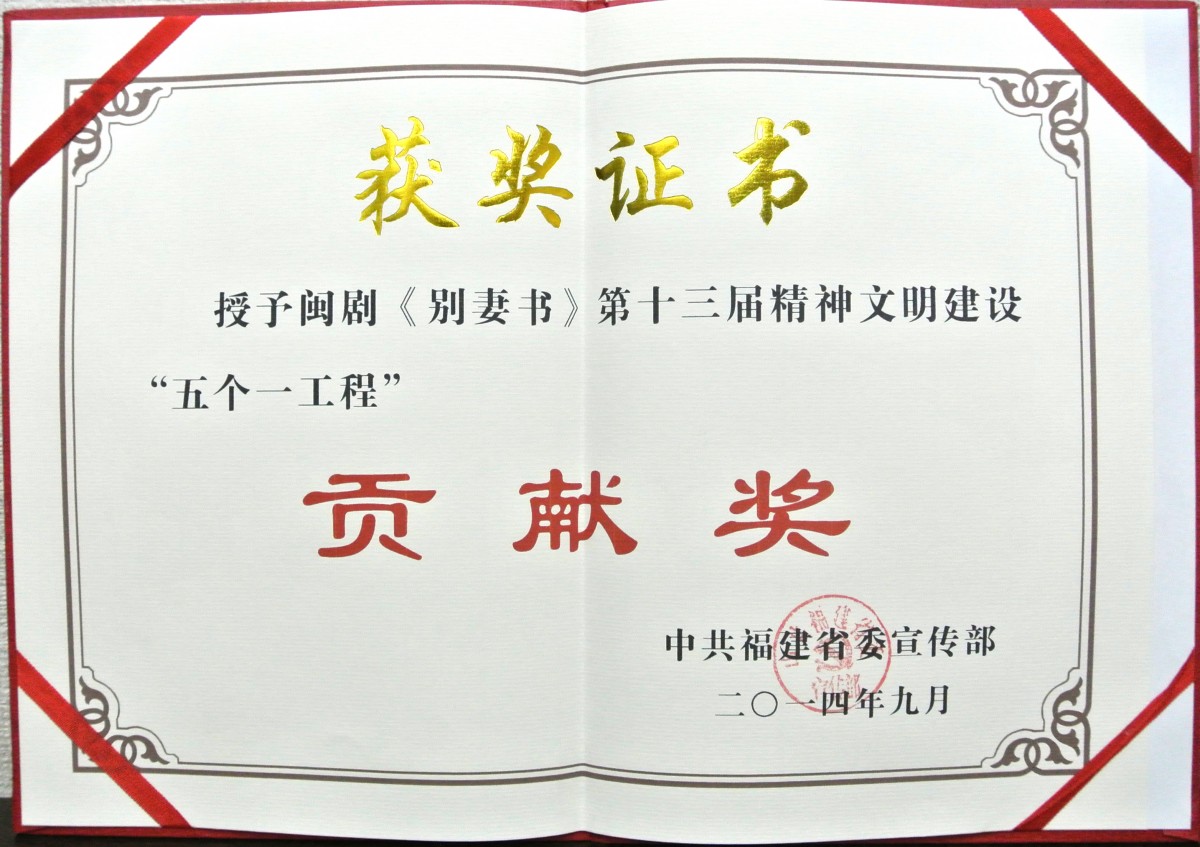 获奖证书
授予闽剧《别妻书》第十三届精神文明建设
“五个一工程”
贡献奖
中共福建省委宣传部
二〇一四年九月